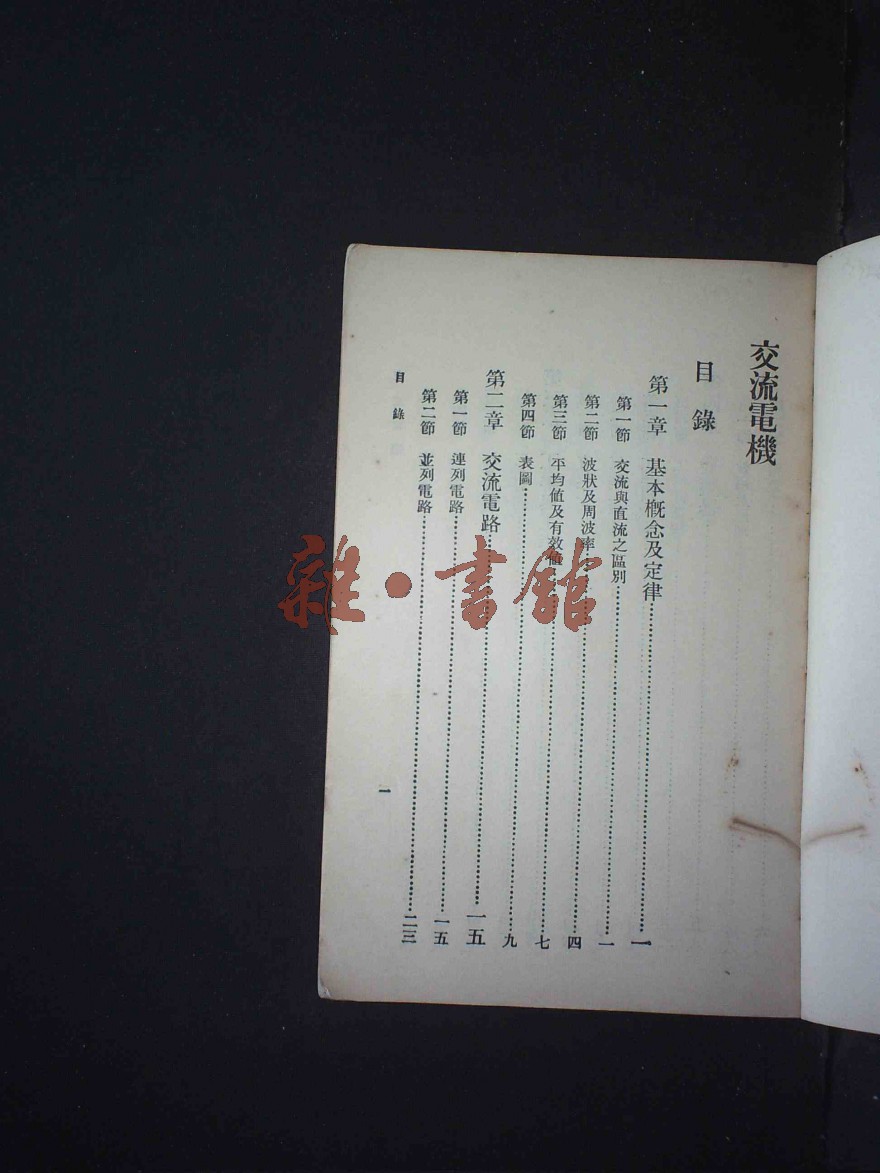 交流電機
目錄
第一章 基本概念及定律……一
第一節 交流與直流之區別……一
第二節 波狀及周波率……四
第三節 平均値及有效値……七
第四節 表圖……九
第二章 交流電路……一五
第一節 連列電路……一五
第二節 並列電路……二三
目錄
一
雜·書館